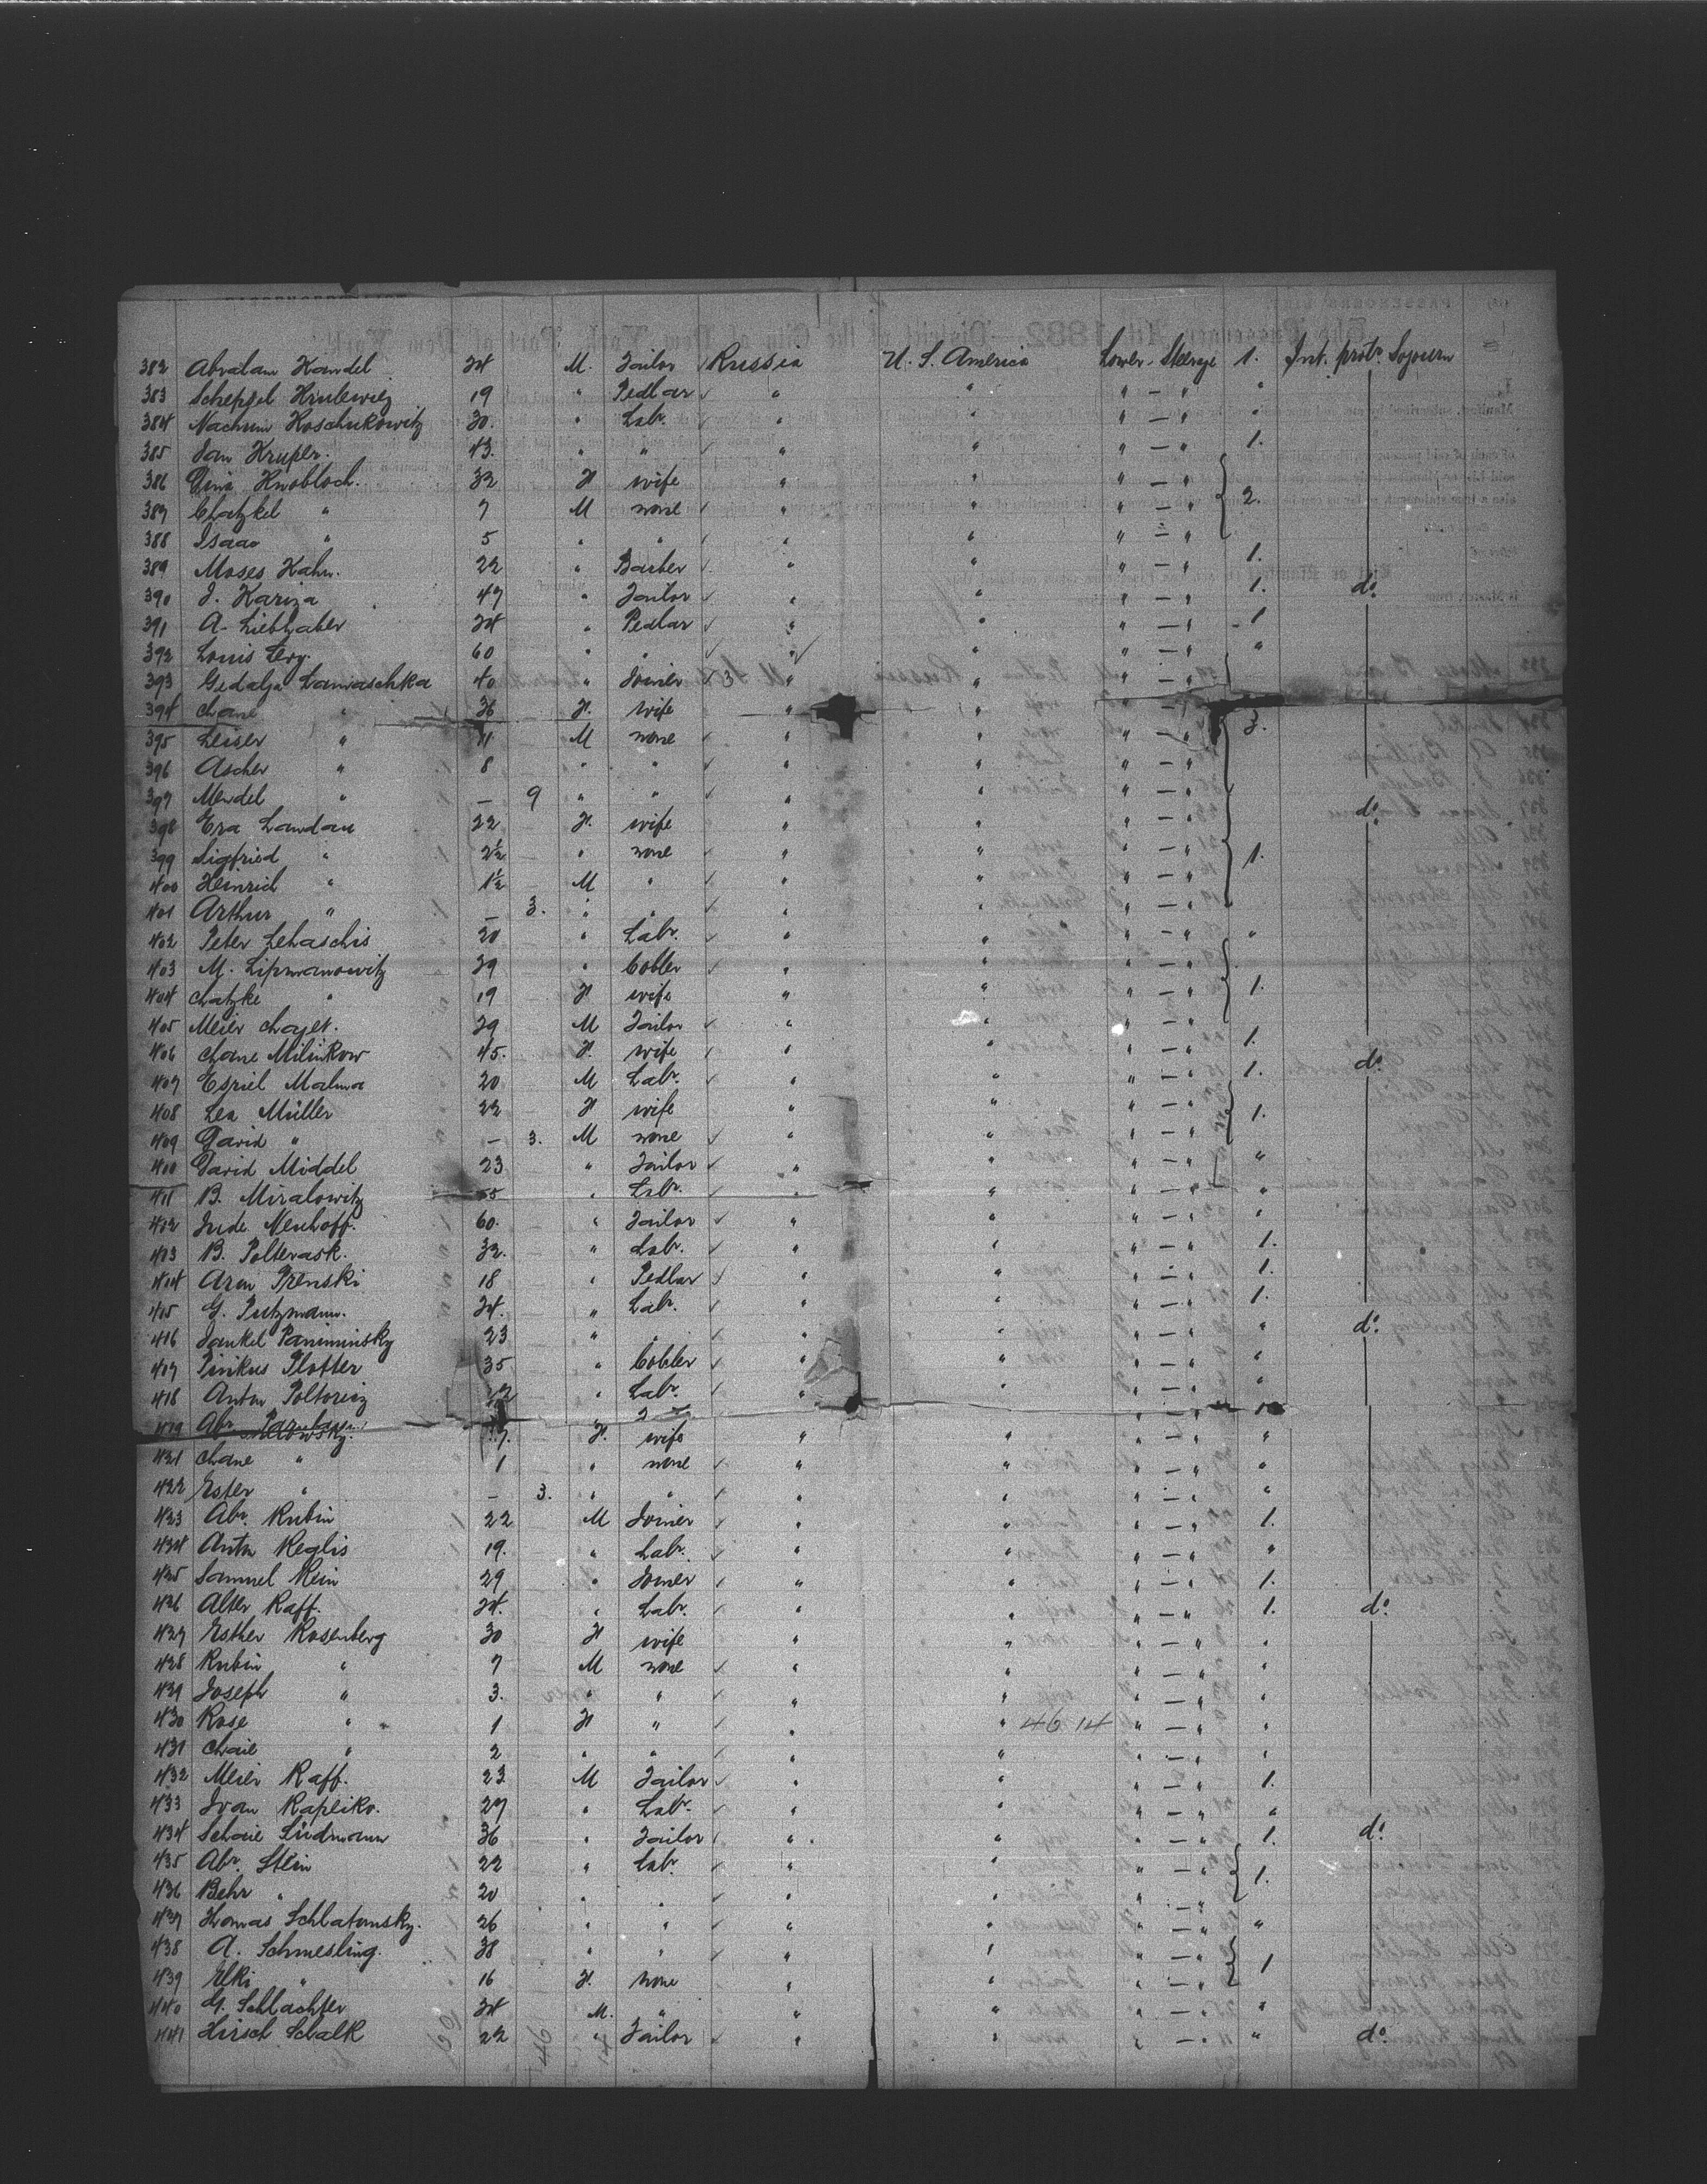 382 Abraham Kandel 24 M. Tailor ✓ Russia U. S. America Lower - Steerage 1. Int. prot. Sojourn
383 Schepsel Krulewiez 19 " Pedlar ✓ " " " — " "
384 Nachum Koschukowitz 30. " Labr. ✓ " " " — " "
385 Jan Kruper. 43. " " ✓ " " " — " 1.
386 Dina Knobloch. 32 F wife " " " — "
387 Chatzkel " 7 M none ✓ " " " — " 2.
388 Isaac " 5 " " ✓ " " " — "
389 Moses Kahn. 22 " Barber ✓ " " " — " 1.
390 J. Kariza 47 " Tailor ✓ " " " — " 1. do.
391 A. Liebhaber 24 " Pedlar ✓ " " " — " 1
392 Louis Levy. 60 " " ✓ " " " — " "
393 Gedalja Lamaschka 40 " Joiner ✓ 3 " " " — "
394 Chane " 36 F. wife " " " — "
395 Leiser " 11 M none ✓ " " " — " 3.
396 Ascher " 8 " " ✓ " " " — "
397 Mendel " — 9 " " ✓ " " " — " do.
398 Eva Landau 22 F. wife " " " — "
399 Sigfried " 2½ " none ✓ " " " — " 1.
400 Heinrich " 1½ M " ✓ " " " — "
401 Arthur " — 3. " " ✓ " " " — "
402 Peter Lehaschis 20 " Labr. ✓ " " " — " "
403 M. Lipmanowitz 29 " Cobler ✓ " " " — "
404 Chatzke " 19 F wife " " " — " 1.
405 Meier Chajet. 29 M Tailor ✓ " " " — "
406 Chane Milinkow 45. F. wife " " " — " 1.
407 Esriel Malma 20 M Labr. ✓ " " " — " 1. do.
408 Lea Müller 22 F wife " " " — "
409 David " — 3. M none ✓ " " " — " 1.
410 David Middel 23 " Tailor ✓ " " " — " "
411 B. Miralowitz " Labr. ✓ " " " — " "
412 Jude Neuhoff. 60. " Tailor ✓ " " " — " "
413 B. Polterask. 32. " Labr. ✓ " " " — " 1.
414 Aron Prenski 18 " Pedlar ✓ " " " — " 1.
415 G. Putzmann. 24. " Labr. ✓ " " " — " 1.
416 Jankel Paniminsky 23 " " ✓ " " " — " " do.
417 Pinkus Plotter 35 " Cobler ✓ " " " — " "
418 Anton Poltoreiz " Labr. ✓ " " " — " "
419 Abr.
F. wife " " " — " "
421 Chane " 1 " none ✓ " " " — " "
422 Ester " — 3. " " ✓ " " " — " "
423 Abr. Rubin 22 M Joiner ✓ " " " — " 1.
424 Anton Reglis 19. " Labr. ✓ " " " — " "
425 Samuel Rein 29 " Joiner ✓ " " " — " 1.
426 Alter Raff. 24. " Labr. ✓ " " " — " 1. do.
427 Esther Rosenberg 30 F wife " " " — " "
428 Rubin " 7 M none ✓ " " " — " "
429 Joseph " 3. " " ✓ " " " — " "
430 Rose " 1 F " ✓ " " 46 14 " — " "
431 Chaie " 2 " " ✓ " " " — " "
432 Meier Raff. 23 M Tailor ✓ " " " — " 1.
433 Ivan Rapeiko. 27 " Labr. ✓ " " " — " "
434 Schaie Südmann 36 " Tailor ✓ " " " — " 1. do.
435 Abr. Stein 22 " Labr. ✓ " " " — "
436 Behr " 20 " " ✓ " " " — " 1.
437 Thomas Schlatomsky. 26 " " ✓ " " " — " "
438 A. Schmesling. 38 " " ✓ " " " — "
439 Elki " 16 F. none " " " — " 1
440 G. Schlachter 24 M. " " " " — " "
441 Hirsch Schalk 22 " Tailor ✓ " " " — " " do.
46 14